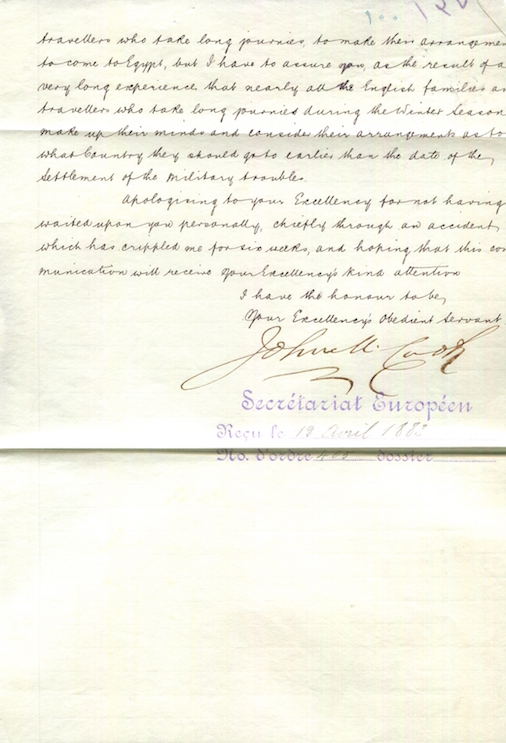 ١٠٠ ١٢٧
travellers who take long journies, to make their arrangemen
to come to Egypt, but I have to assure you, as the result of a
very long experience that nearly all the English families an
travellers who take long journies during the Winter Season
make up their minds and consider their arrangements as to
what Country they should go to earlier than the date of the
Settlement of the Military troubles.
Apologising to your Excellency for not having
waited upon you personally, chiefly through an accident
which has crippled me for six weeks, and hoping that this com
munication will receive Your Excellency's kind attention
I have the honour to be,
Your Excellency's Obedient Servant
John M. Cook
Secrétariat Européen
Reçu le 19 Avril 1883
No. d'ordre dossier